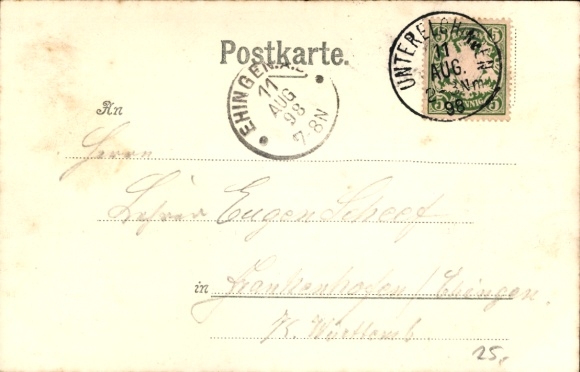 Postkarte.
UNTEREICH
11
AUG.
98
5
5 5
EHINGEN A.D.
11
AUG
98
7-8N
An
Herrn
Lehrer Eugen Scheef
in Frankenhofen / Ehingen.
i/ Württemb.
25.-